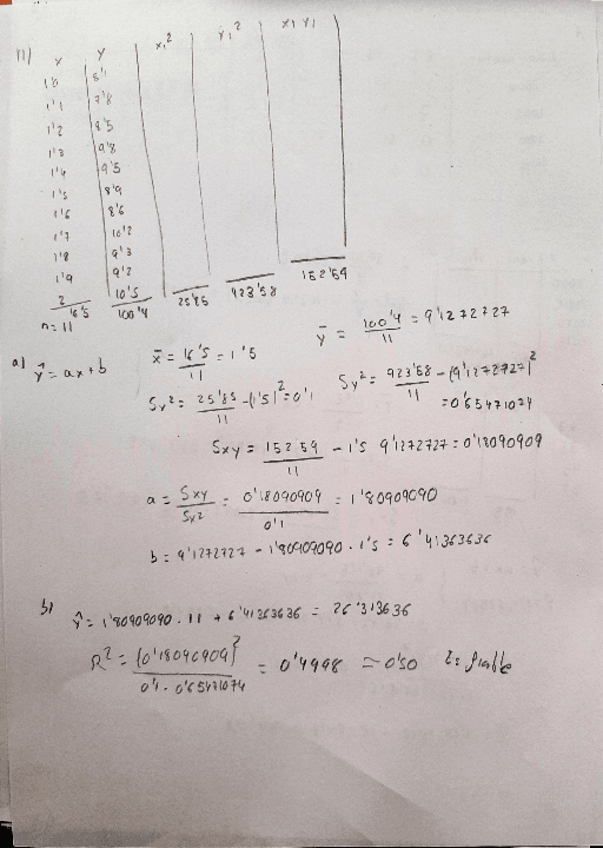 11) x y x₁² y₁² x₁ y₁
1'0 8'1
1'1 7'8
1'2 8'5
1'3 9'8
1'4 9'5
1'5 8'9
1'6 8'6
1'7 10'2
1'8 9'3
1'9 9'2
2 10'5
16'5 100'4 25'85 923'58 152'59
n = 11
a) ŷ = ax + b x̄ = 16'5 / 11 = 1'5 ȳ = 100'4 / 11 = 9'1272727
Sx² = 25'85 / 11 - (1'5)² = 0'1 Sy² = 923'58 / 11 - (9'1272727)² = 0'65471074
Sxy = 152'59 / 11 - 1'5 9'1272727 = 0'18090909
a = Sxy / Sx² = 0'18090909 / 0'1 = 1'80909090
b = 9'1272727 - 1'80909090 · 1'5 = 6'41363636
b) ŷ = 1'80909090 · 11 + 6'41363636 = 26'313636
R² = (0'18090909)² / 0'1 · 0'65471074 = 0'4998 = 0'50 Es fiable